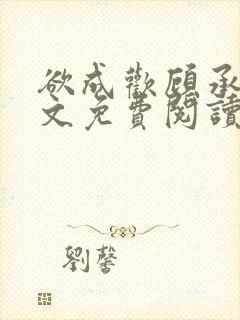 欲成歡顧承
文免費閱讀
劉馨